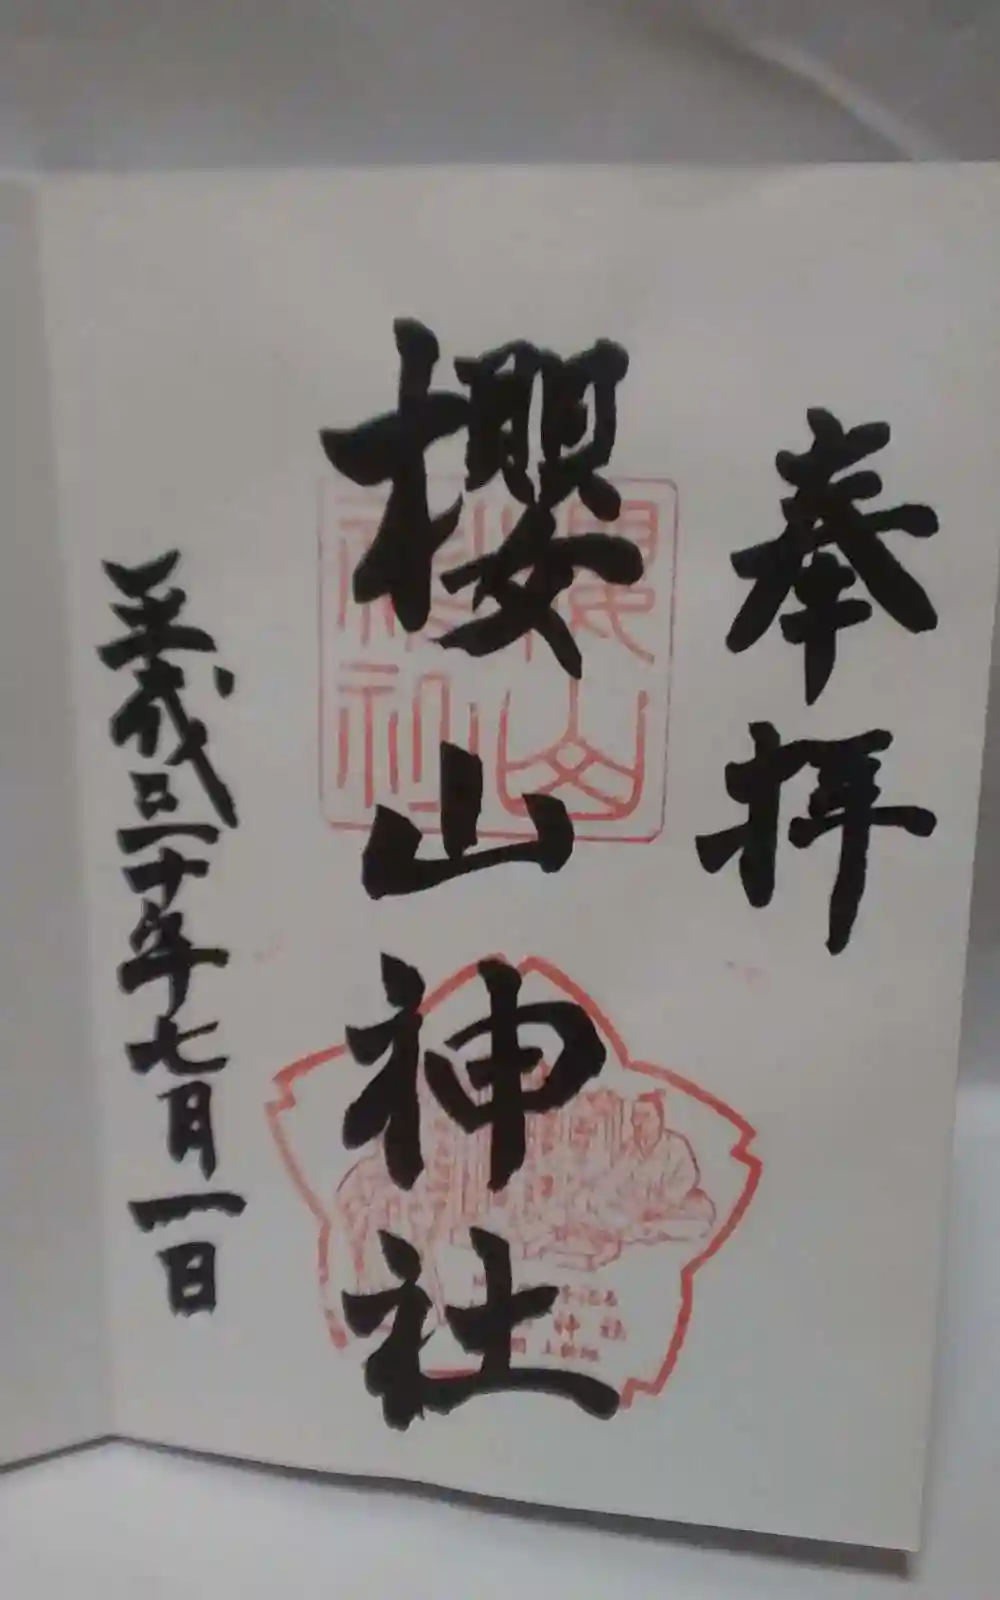 奉拝
櫻山神社
平成三十年七月一日
櫻山
神社